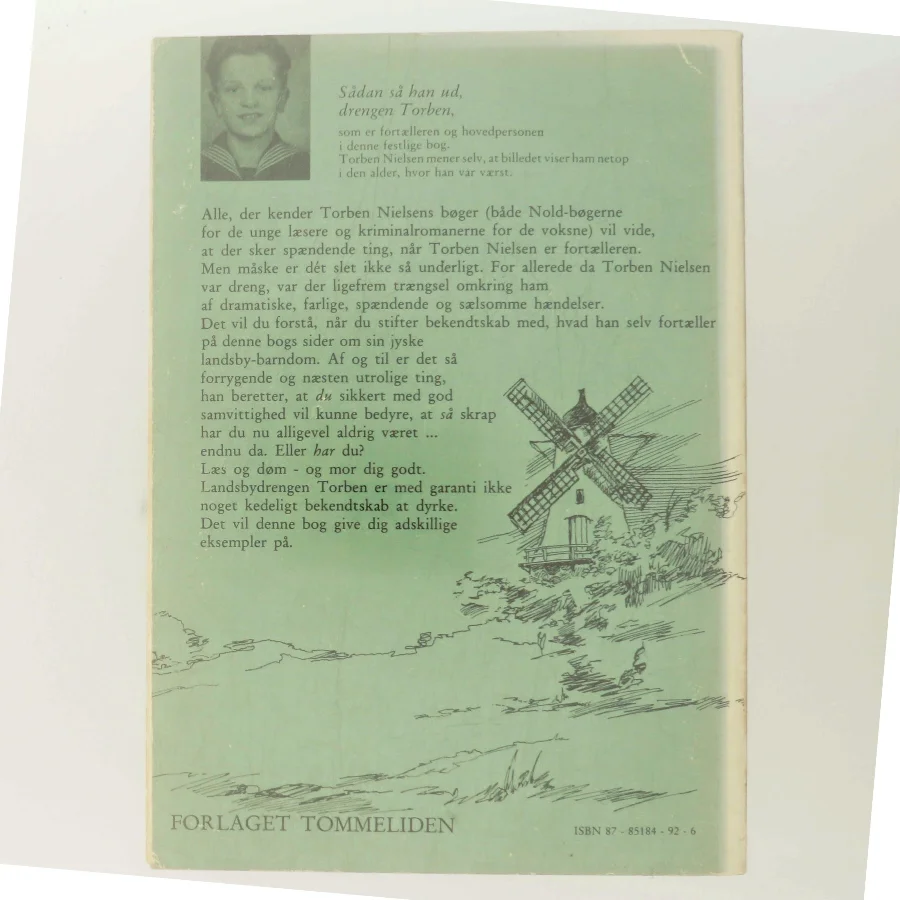 Sådan så han ud,
drengen Torben,
som er fortælleren og hovedpersonen
i denne festlige bog.
Torben Nielsen mener selv, at billedet viser ham netop
i den alder, hvor han var værst.
Alle, der kender Torben Nielsens bøger (både Nold-bøgerne
for de unge læsere og kriminalromanerne for de voksne) vil vide,
at der sker spændende ting, når Torben Nielsen er fortælleren.
Men måske er dét slet ikke så underligt. For allerede da Torben Nielsen
var dreng, var der ligefrem trængsel omkring ham
af dramatiske, farlige, spændende og sælsomme hændelser.
Det vil du forstå, når du stifter bekendtskab med, hvad han selv fortæller
på denne bogs sider om sin jyske
landsby-barndom. Af og til er det så
forrygende og næsten utrolige ting,
han beretter, at du sikkert med god
samvittighed vil kunne bedyre, at så skrap
har du nu alligevel aldrig været ...
endnu da. Eller har du?
Læs og døm - og mor dig godt.
Landsbydrengen Torben er med garanti ikke
noget kedeligt bekendtskab at dyrke.
Det vil denne bog give dig adskillige
eksempler på.
FORLAGET TOMMELIDEN
ISBN 87 - 85184 - 92 - 6